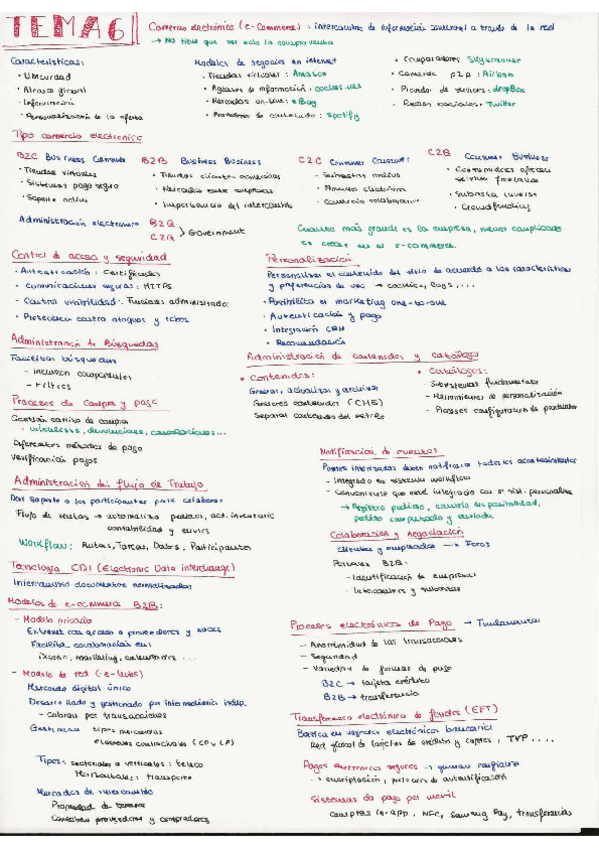 TEMA 6
Comercio electrónico (e-Commerce): intercambio de información comercial a través de la red
→ NO tiene que ser solo la compra venta
Características:
• Ubicuidad
• Alcance global
• Información
• Personalización de la oferta
Modelos de negocios en internet
• Tiendas virtuales: Amazon
• Agentes de información: coches.net
• Mercados on-line: eBay
• Proveedores de contenido: Spotify
• Comparadores Skyscanner
• Comercio p2p: Airbnb
• Proveedor de servicios: dropBox
• Redes sociales: Twitter
Tipos comercio electrónico
B2C Business Consumer
• Tiendas virtuales
• Sistemas pago seguro
• Soporte online
B2B Business Business
• Tiendas clientes
• Mercados entre empresas
• Importancia del intercambio
C2C Consumer Consumer:
• Subastas
• Anuncios electrónicos
• Comercio colaborativo
C2B Consumer Business
• Consumidores ofrecen servicio freelance
• Subasta inversa
• Crowdfunding
Administración electrónica B2G
C2G } Government
Cuanto más grande es la empresa, menos complicado es crear un e-commerce.
Control de acceso y seguridad
• Autenticación: Certificados
• Comunicaciones seguras: HTTPS
• Control visibilidad: Funciones administrador
• Protección contra ataques y robos
Personalización
Personalizar el contenido del sitio de acuerdo a las características
y preferencias de uso → cookies, logs, ...
• Posibilita el marketing one-to-one
• Autenticación y pago
• Integración CRM
• Recomendación
Administración de Búsquedas
Facilitar búsquedas
- inclusión
- Filtros
Administración de contenidos y catálogo
• Contenidos:
Generar, actualizar y archivar
Gestores contenidos (CMS)
Separar contenidos del estilo
• Catálogos:
- Subsistemas fundamentales
- Herramientas de personalización
- Procesos configuración de productos
Procesos de compra y pago
Gestión carrito de compra
- wishlists, devoluciones, cancelaciones...
Diferentes métodos de pago
Verificación pagos
Notificación de eventos
Partes interesadas deben notificarse todos los acontecimientos
- Integrado en sistemas workflow
- Conveniente que esté integrado con el sist. personaliza
→ Registro pedido, cambio disponibilidad,
pedido completado y enviado.
Administración del flujo de Trabajo
Dar soporte a los participantes para colaborar
Flujo de ventas → automatiza pedidos, act. inventario
contabilidad y envíos
Workflow: Rutas, Tareas, Datos, Participantes
Colaboración y negociación
clientes y empleados → Foros
Portales B2B:
- Identificación de empresas
- Licitaciones y subastas
Tecnología EDI (Electronic Data Interchange)
Intercambio documentos normalizados
Modelos de e-commerce B2B:
- Modelo privado
Extranet con acceso a proveedores y socios
Facilita colaboración en:
Diseño, marketing, calendarios ...
- Modelo de red (e-hubs)
Mercado digital único
Desarrollado y gestionado por intermediario indep.
- Cobran por transacciones
Gestionan tipos mercados
relaciones contractuales (CP y LP)
Tipos: sectoriales o verticales:
Horizontales: transporte
Mercados de intercambio
Propiedad de terceros
Conectan proveedores y compradores
Procesos electrónicos de Pago →
- Anonimidad de las transacciones
- Seguridad
- Variedad de formas de pago
B2C → tarjeta crédito
B2B → transferencia
Transferencia electrónica de fondos (EFT)
Basada en registros electrónicos bancarios
Red global de tarjetas de crédito y cajeros, TPV ....
Pagos electrónicos seguros → generan confianza
→ encriptación, procesos de autentificación
Sistemas de pago por móvil
compras in-app, NFC, Samsung Pay, transferencias